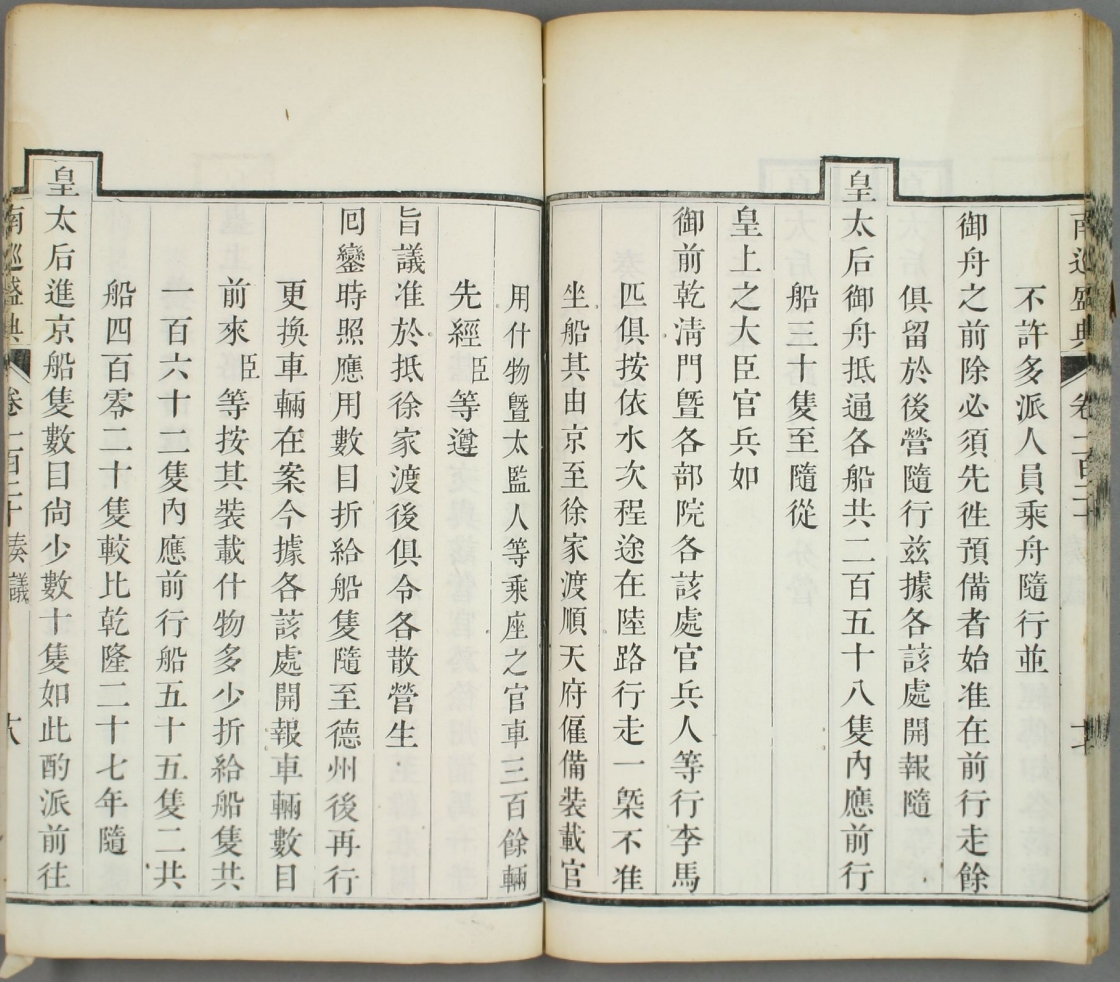 南巡盛典
卷一百二十
奏議
不許多派人員乘舟隨行並
御舟之前除必須先徃預備者始准在前行走餘
俱留於後營隨行兹據各該處開報隨
皇太后御舟抵通各船共二百五十八隻內應前行
船三十隻至隨從
皇上之大臣官兵如
御前乾淸門曁各部院各該處官兵人等行李馬
匹俱按依水次程途在陸路行走一槩不准
坐船其由京至徐家渡順天府僱備裝載官
用什物曁太監人等乘座之官車三百餘輛
先經臣等遵
旨議准於抵徐家渡後俱令各散營生
囘鑾時照應用數目折給船隻隨至德州後再行
更換車輛在案今據各該處開報車輛數目
前來臣等按其裝載什物多少折給船隻共
一百六十二隻內應前行船五十五隻二共
船四百零二十隻較比乾隆二十七年隨
皇太后進京船隻數目尙少數十隻如此酌派前往
南巡盛典
卷一百二十
奏議
六